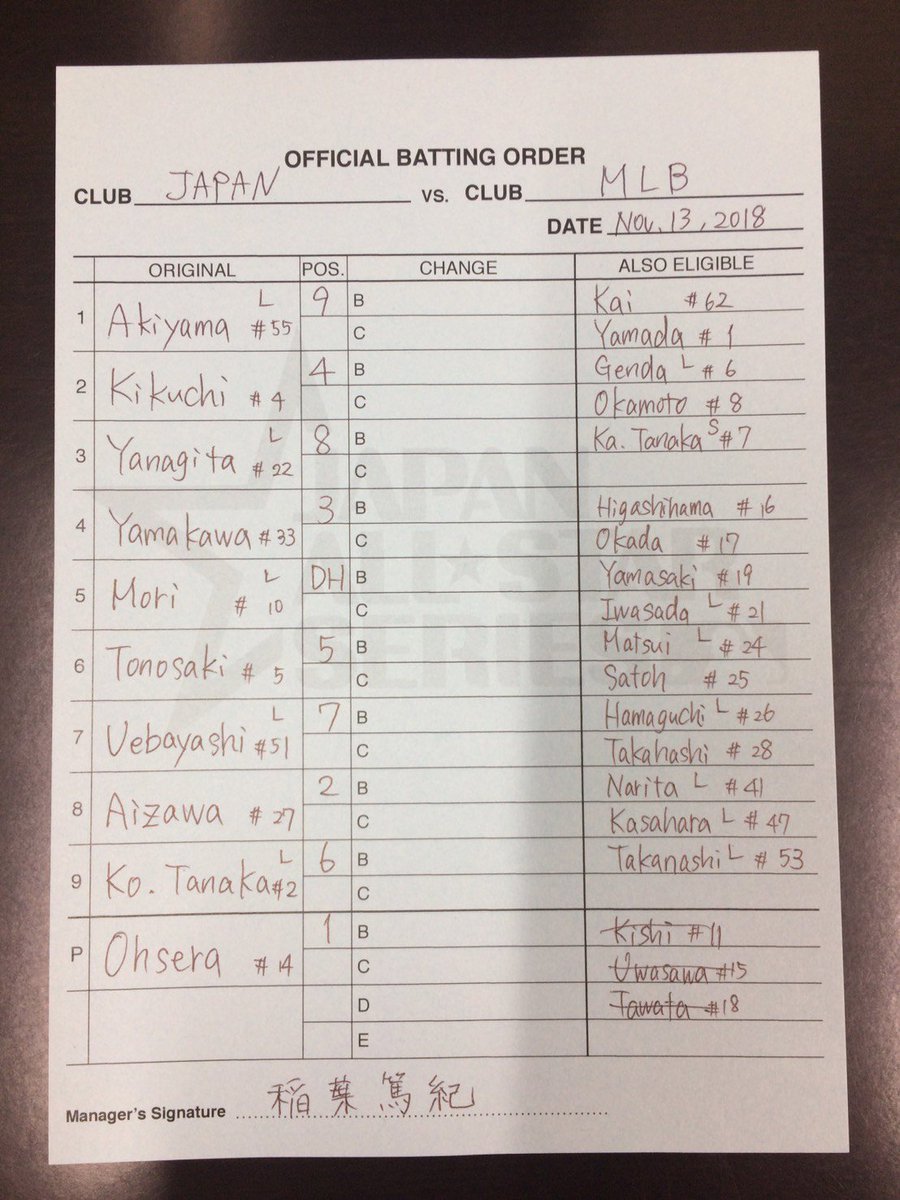 OFFICIAL BATTING ORDER
CLUB JAPAN vs. CLUB MLB
DATE Nov. 13, 2018
ORIGINAL POS. CHANGE ALSO ELIGIBLE
1 Akiyama L #55 9 B Kai #62
C Yamada #1
2 Kikuchi #4 4 B Genda L #6
C Okamoto #8
3 Yanagita L #22 8 B Ka. Tanaka S #7
C
4 Yamakawa #33 3 B Higashihama #16
C Okada #17
5 Mori L #10 DH B Yamasaki #19
C Iwasada L #21
6 Tonosaki #5 5 B Matsui L #24
C Satoh #25
7 Uebayashi L #51 7 B Hamaguchi L #26
C Takahashi #28
8 Aizawa #27 2 B Narita L #41
C Kasahara L #47
9 Ko. Tanaka L #2 6 B Takanashi L #53
C
P Ohsera #14 1 B Kishi #11
C Uwasawa #15
D Tawata #18
E
Manager's Signature 稲葉篤紀
JAPAN
ALL★STAR
SERIES